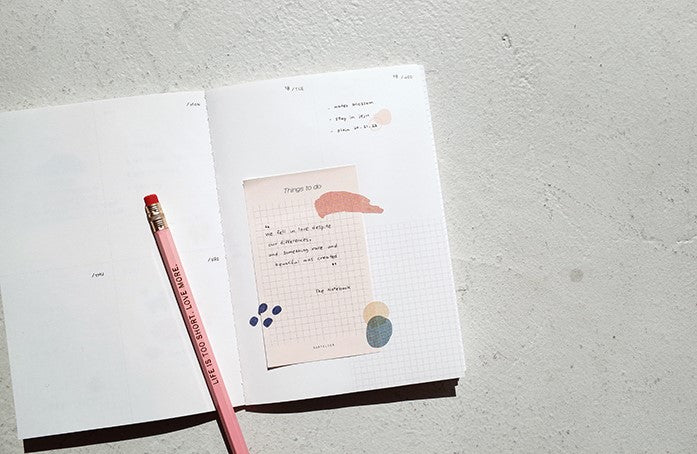 /MON
/TUE
/WED
- water blossom
- stay in
Things to do
"
we fell in love despite
our differences,
and something rare and
beautiful was created
"
The Notebook
/THU
/FRI
LIFE IS TOO SHORT. LOVE MORE.